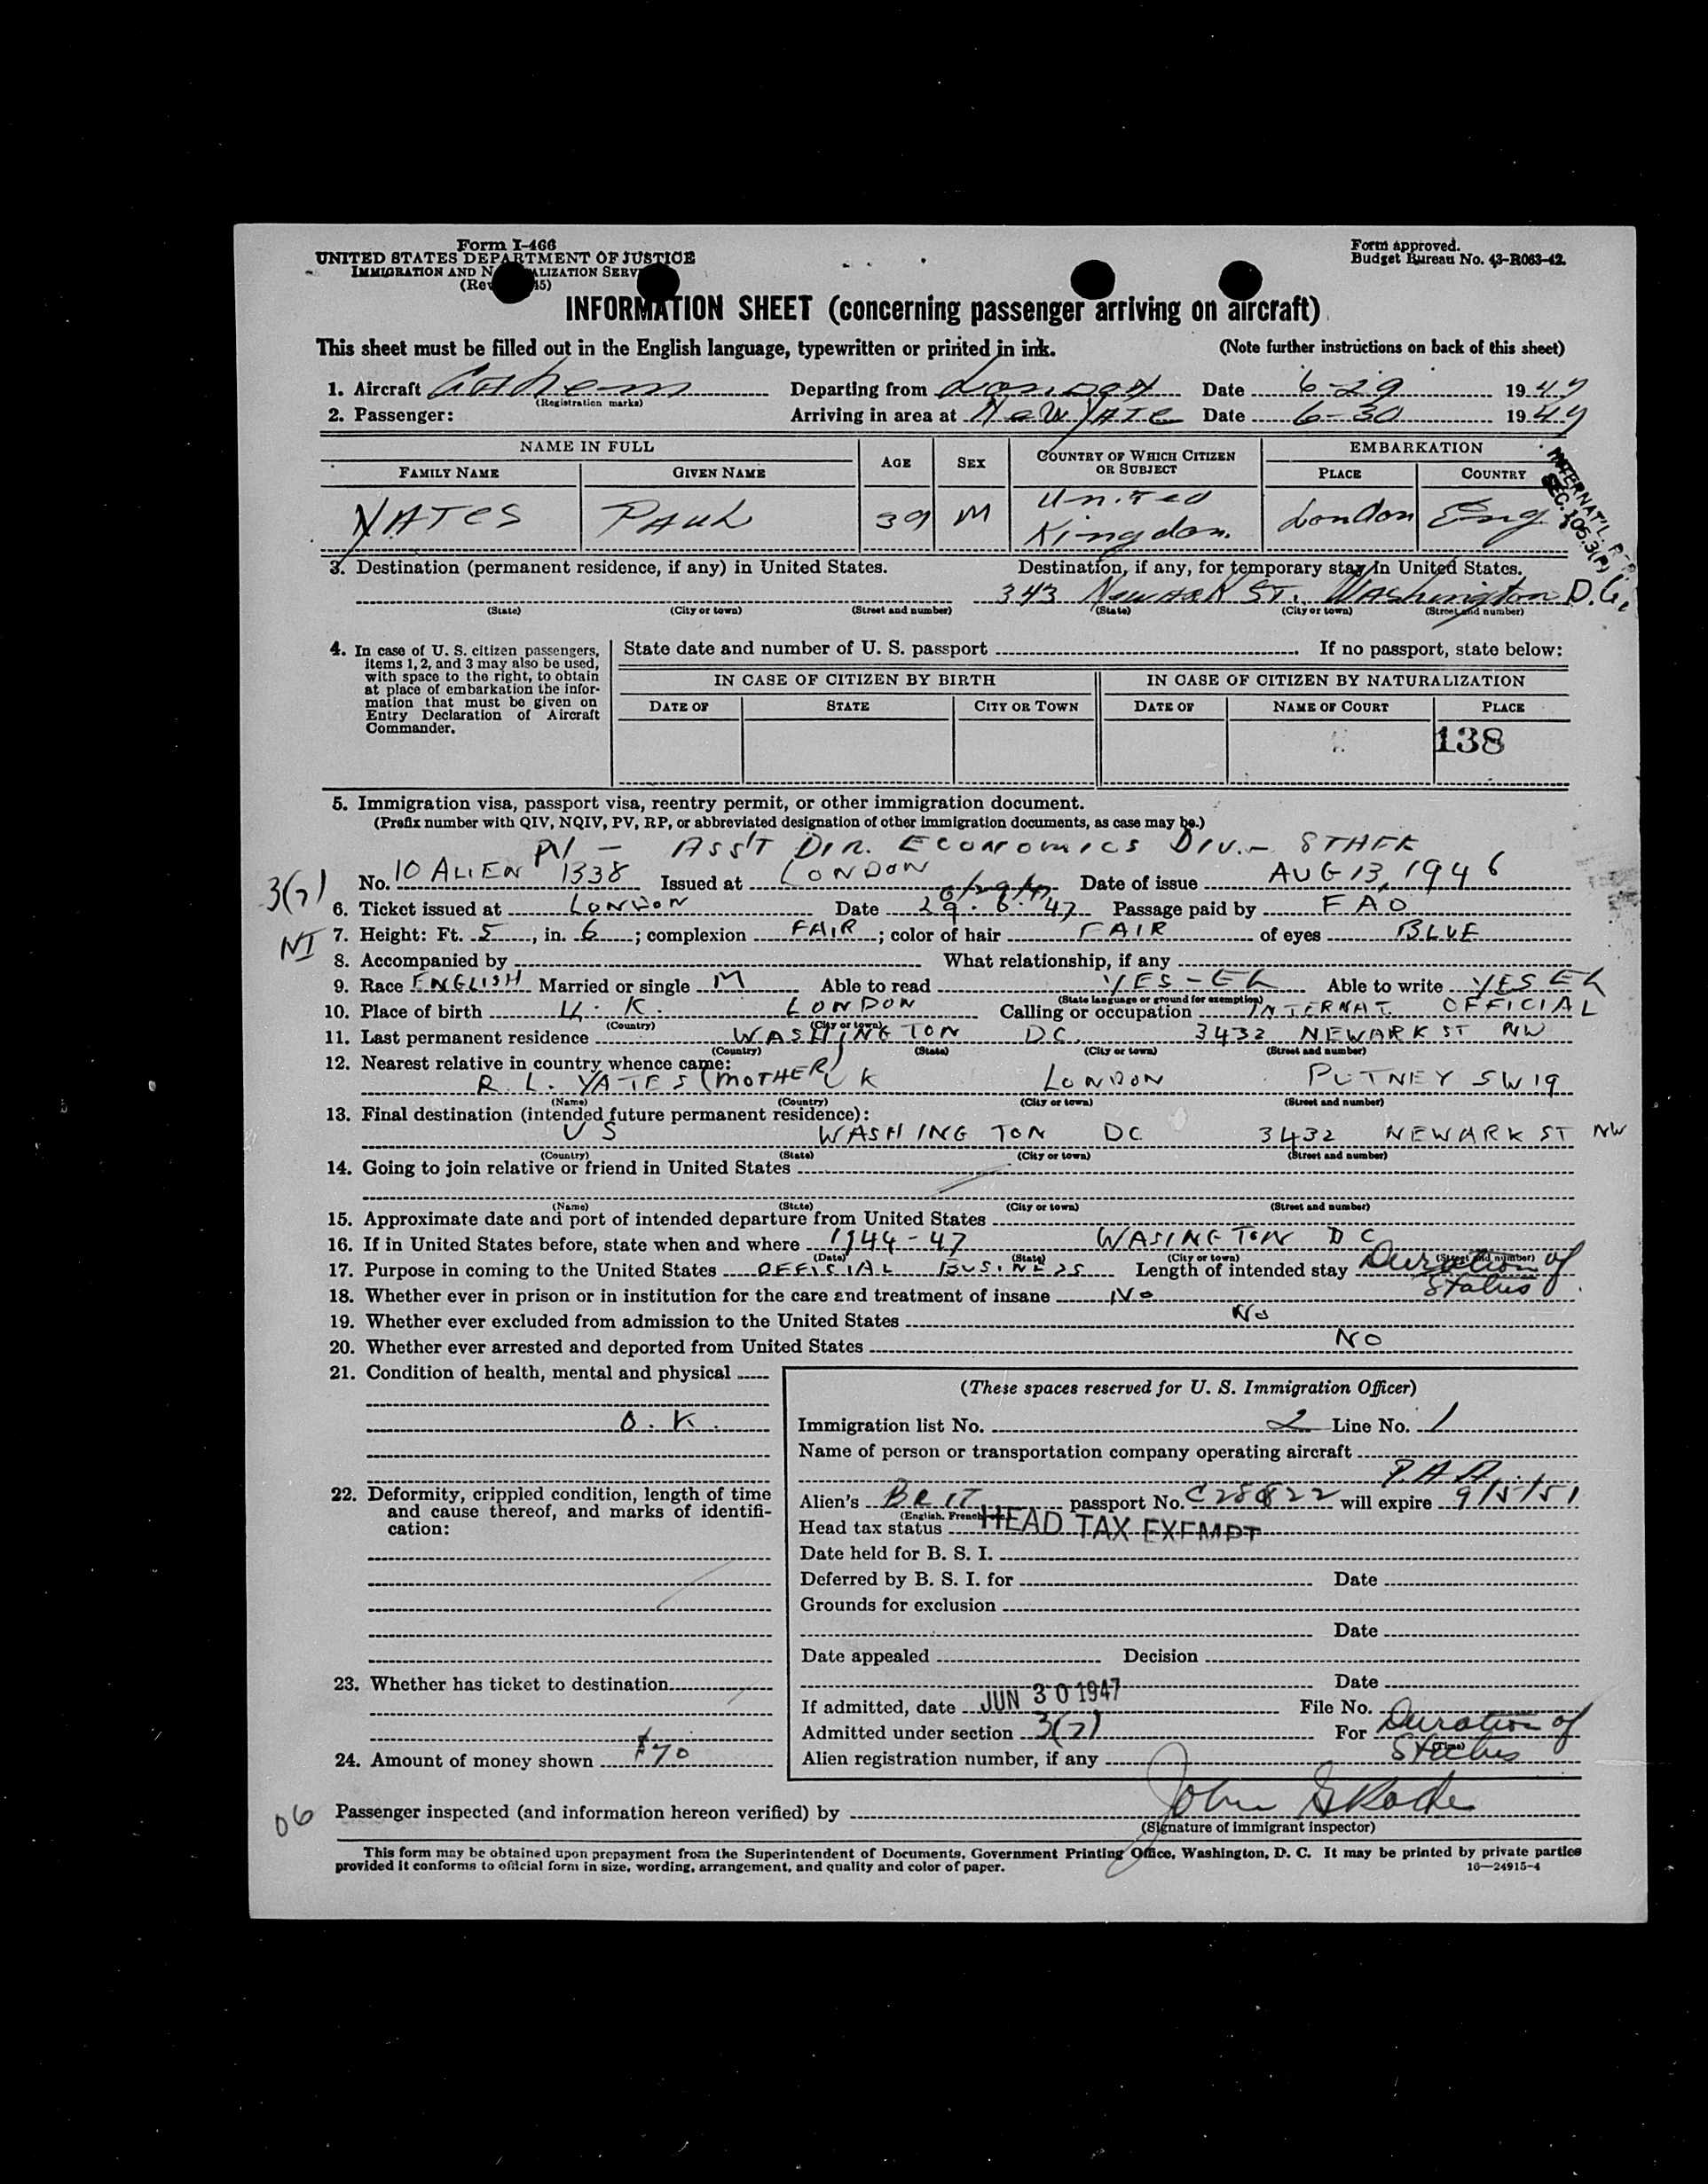 Form I-466
UNITED STATES DEPARTMENT OF JUSTICE
IMMIGRATION AND N ALIZATION SERV
(Rev 45)
Form approved.
Budget Bureau No. 43-R063-42.
INFORMATION SHEET (concerning passenger arriving on aircraft)
This sheet must be filled out in the English language, typewritten or printed in ink. (Note further instructions on back of this sheet)
1. Aircraft Departing from London Date 6-29 1947
(Registration marks)
2. Passenger: Arriving in area at New York Date 6-30 1947
NAME IN FULL AGE SEX COUNTRY OF WHICH CITIZEN OR SUBJECT EMBARKATION
FAMILY NAME GIVEN NAME PLACE COUNTRY
YATES PAUL 39 M United Kingdom. London Eng
INTERNAT'L. REP
SEC. 105.3(P)
3. Destination (permanent residence, if any) in United States. Destination, if any, for temporary stay in United States.
343 Newark St. Washington D.C.
(State) (City or town) (Street and number) (State) (City or town) (Street and number)
4. In case of U. S. citizen passengers, items 1, 2, and 3 may also be used, with space to the right, to obtain at place of embarkation the information that must be given on Entry Declaration of Aircraft Commander.
State date and number of U. S. passport If no passport, state below:
IN CASE OF CITIZEN BY BIRTH IN CASE OF CITIZEN BY NATURALIZATION
DATE OF STATE CITY OR TOWN DATE OF NAME OF COURT PLACE
138
5. Immigration visa, passport visa, reentry permit, or other immigration document.
(Prefix number with QIV, NQIV, PV, RP, or abbreviated designation of other immigration documents, as case may be.)
PV - Ass't Dir. Economics Div. - Staff
No. 10 ALIEN 1338 Issued at LONDON Date of issue AUG 13, 1946
3(7)
6/29/47
6. Ticket issued at LONDON Date 29.6.47 Passage paid by FAO
NI
7. Height: Ft. 5, in. 6; complexion FAIR; color of hair FAIR of eyes BLUE
8. Accompanied by What relationship, if any
9. Race ENGLISH Married or single M Able to read YES - EL Able to write YES EL
(State language or ground for exemption)
10. Place of birth U. K. LONDON Calling or occupation INTERNAT. OFFICIAL
(Country) (City or town)
11. Last permanent residence WASHINGTON DC. 3432 NEWARK ST NW
(Country) (State) (City or town) (Street and number)
12. Nearest relative in country whence came:
R. L. YATES (MOTHER) UK LONDON PUTNEY SW19
(Name) (Country) (City or town) (Street and number)
13. Final destination (intended future permanent residence):
US WASHINGTON DC 3432 NEWARK ST NW
(Country) (State) (City or town) (Street and number)
14. Going to join relative or friend in United States
(Name) (State) (City or town) (Street and number)
15. Approximate date and port of intended departure from United States
16. If in United States before, state when and where 1944-47 WASINGTON DC
(Date) (State) (City or town) (Street and number)
17. Purpose in coming to the United States OFFISIAL BUSINESS Length of intended stay Duration of Status
18. Whether ever in prison or in institution for the care and treatment of insane No
19. Whether ever excluded from admission to the United States No
20. Whether ever arrested and deported from United States NO
21. Condition of health, mental and physical
O. K.
22. Deformity, crippled condition, length of time and cause thereof, and marks of identification:
23. Whether has ticket to destination
24. Amount of money shown $70
(These spaces reserved for U. S. Immigration Officer)
Immigration list No. 2 Line No. 1
Name of person or transportation company operating aircraft
P.A.A.
Alien's BRIT passport No. will expire 9/5/51
(English, French, etc.)
Head tax status HEAD TAX EXEMPT
Date held for B. S. I.
Deferred by B. S. I. for Date
Grounds for exclusion
Date
Date appealed Decision
Date
If admitted, date JUN 30 1947 File No.
Admitted under section 3(7) For Duration of Status
(Time)
Alien registration number, if any
06
Passenger inspected (and information hereon verified) by John
(Signature of immigrant inspector)
This form may be obtained upon prepayment from the Superintendent of Documents, Government Printing Office, Washington, D. C. It may be printed by private parties
provided it conforms to official form in size, wording, arrangement, and quality and color of paper. 16—24915-4